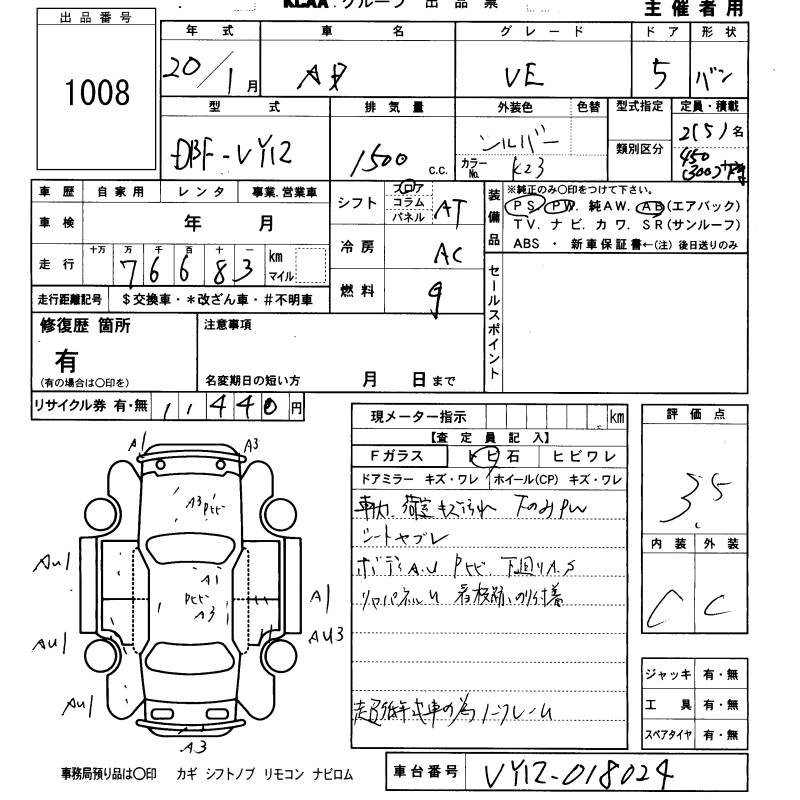 KCAA グループ 出品票 主催者用
出品番号
1008
年式 車名 グレード ドア 形状
20/1月 AD VE 5 バン
型式 排気量 外装色 色替 型式指定 定員・積載
DBF-VY12 1500 c.c. シルバー 2(5)名
カラーNo. K23 類別区分 450(300)
車歴 自家用 レンタ 事業.営業車
車検 年 月
走行 十万 万 千 百 十 一 km マイル
76683
走行距離記号 $交換車・*改ざん車・#不明車
シフト フロア コラム パネル AT
冷房 AC
燃料 g
装備品
※純正のみ〇印をつけて下さい。
PS. PW. 純AW. AB(エアバック)
TV. ナビ. カワ. SR(サンルーフ)
ABS ・ 新車保証書←(注) 後日送りのみ
セールスポイント
修復歴 箇所
有
(有の場合は〇印を)
注意事項
名変期日の短い方 月 日まで
リサイクル券 有・無 11440円
現メーター指示 km
【査定員記入】
Fガラス トビ石 ヒビワレ
ドアミラー キズ・ワレ ホイール(CP) キズ・ワレ
荷室キズ汚れ 下のみPW
シートヤブレ
ボディA.U Pヒビ 下回りA.S
リヤパネルU 看板跡、のり付着
超低年式車の為ノークレーム
評価点
3.5
内装 外装
C C
ジャッキ 有・無
工具 有・無
スペアタイヤ 有・無
A1 A3
A3 Pヒビ
AU1 A1 A1
Pヒビ
A3
AU1 AU3
AU1
A3
事務局預り品は〇印 カギ シフトノブ リモコン ナビロム
車台番号 VY12-018024